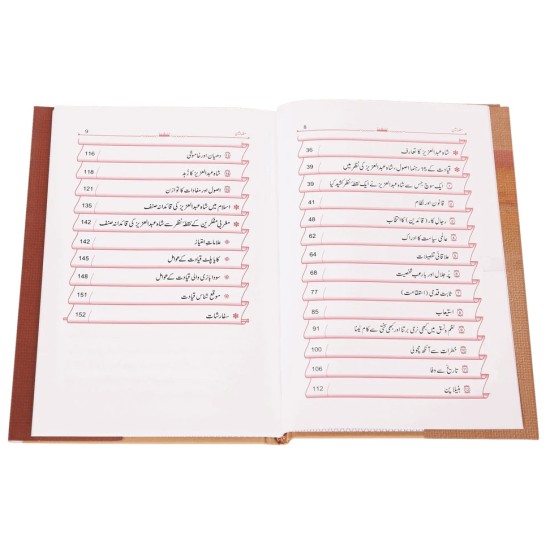 8
شاہ عبدالعزیز کا تعارف 36
قیادت کے 15 رہنما اصول، شاہ عبدالعزیز کی نظر میں 39
ایک سوچ جس سے شاہ عبدالعزیز نے ایک نقطۂ نظر کشید کیا 39
قانون اور نظام 41
رجال کار (قائدین) کا انتخاب 48
عالمی سیاست کا ادراک 62
علاقائی تحفظات 64
پر جلال اور بارعب شخصیت 68
ثابت قدمی (استقامت) 77
استیعاب 85
نظم و نسق میں کبھی نرمی برتنا اور کبھی سختی سے کام لینا 91
خطرات سے آنکھ مچولی 100
تاریخ سے وفا 106
112
9
دھیان اور خاموشی 116
شاہ عبدالعزیز کا زہد 118
اصول اور مفادات کا توازن 121
اسلام میں شاہ عبدالعزیز کی قائدانہ صنف 135
مغربی مفکرین کے نقطۂ نظر سے شاہ عبدالعزیز کی قائدانہ صنف 142
علامات امتیاز 142
کایا پلٹ قیادت کے عوامل 145
سودا بازی والی قیادت کے عوامل 148
موقع شناس قیادت 151
سفارشات 152